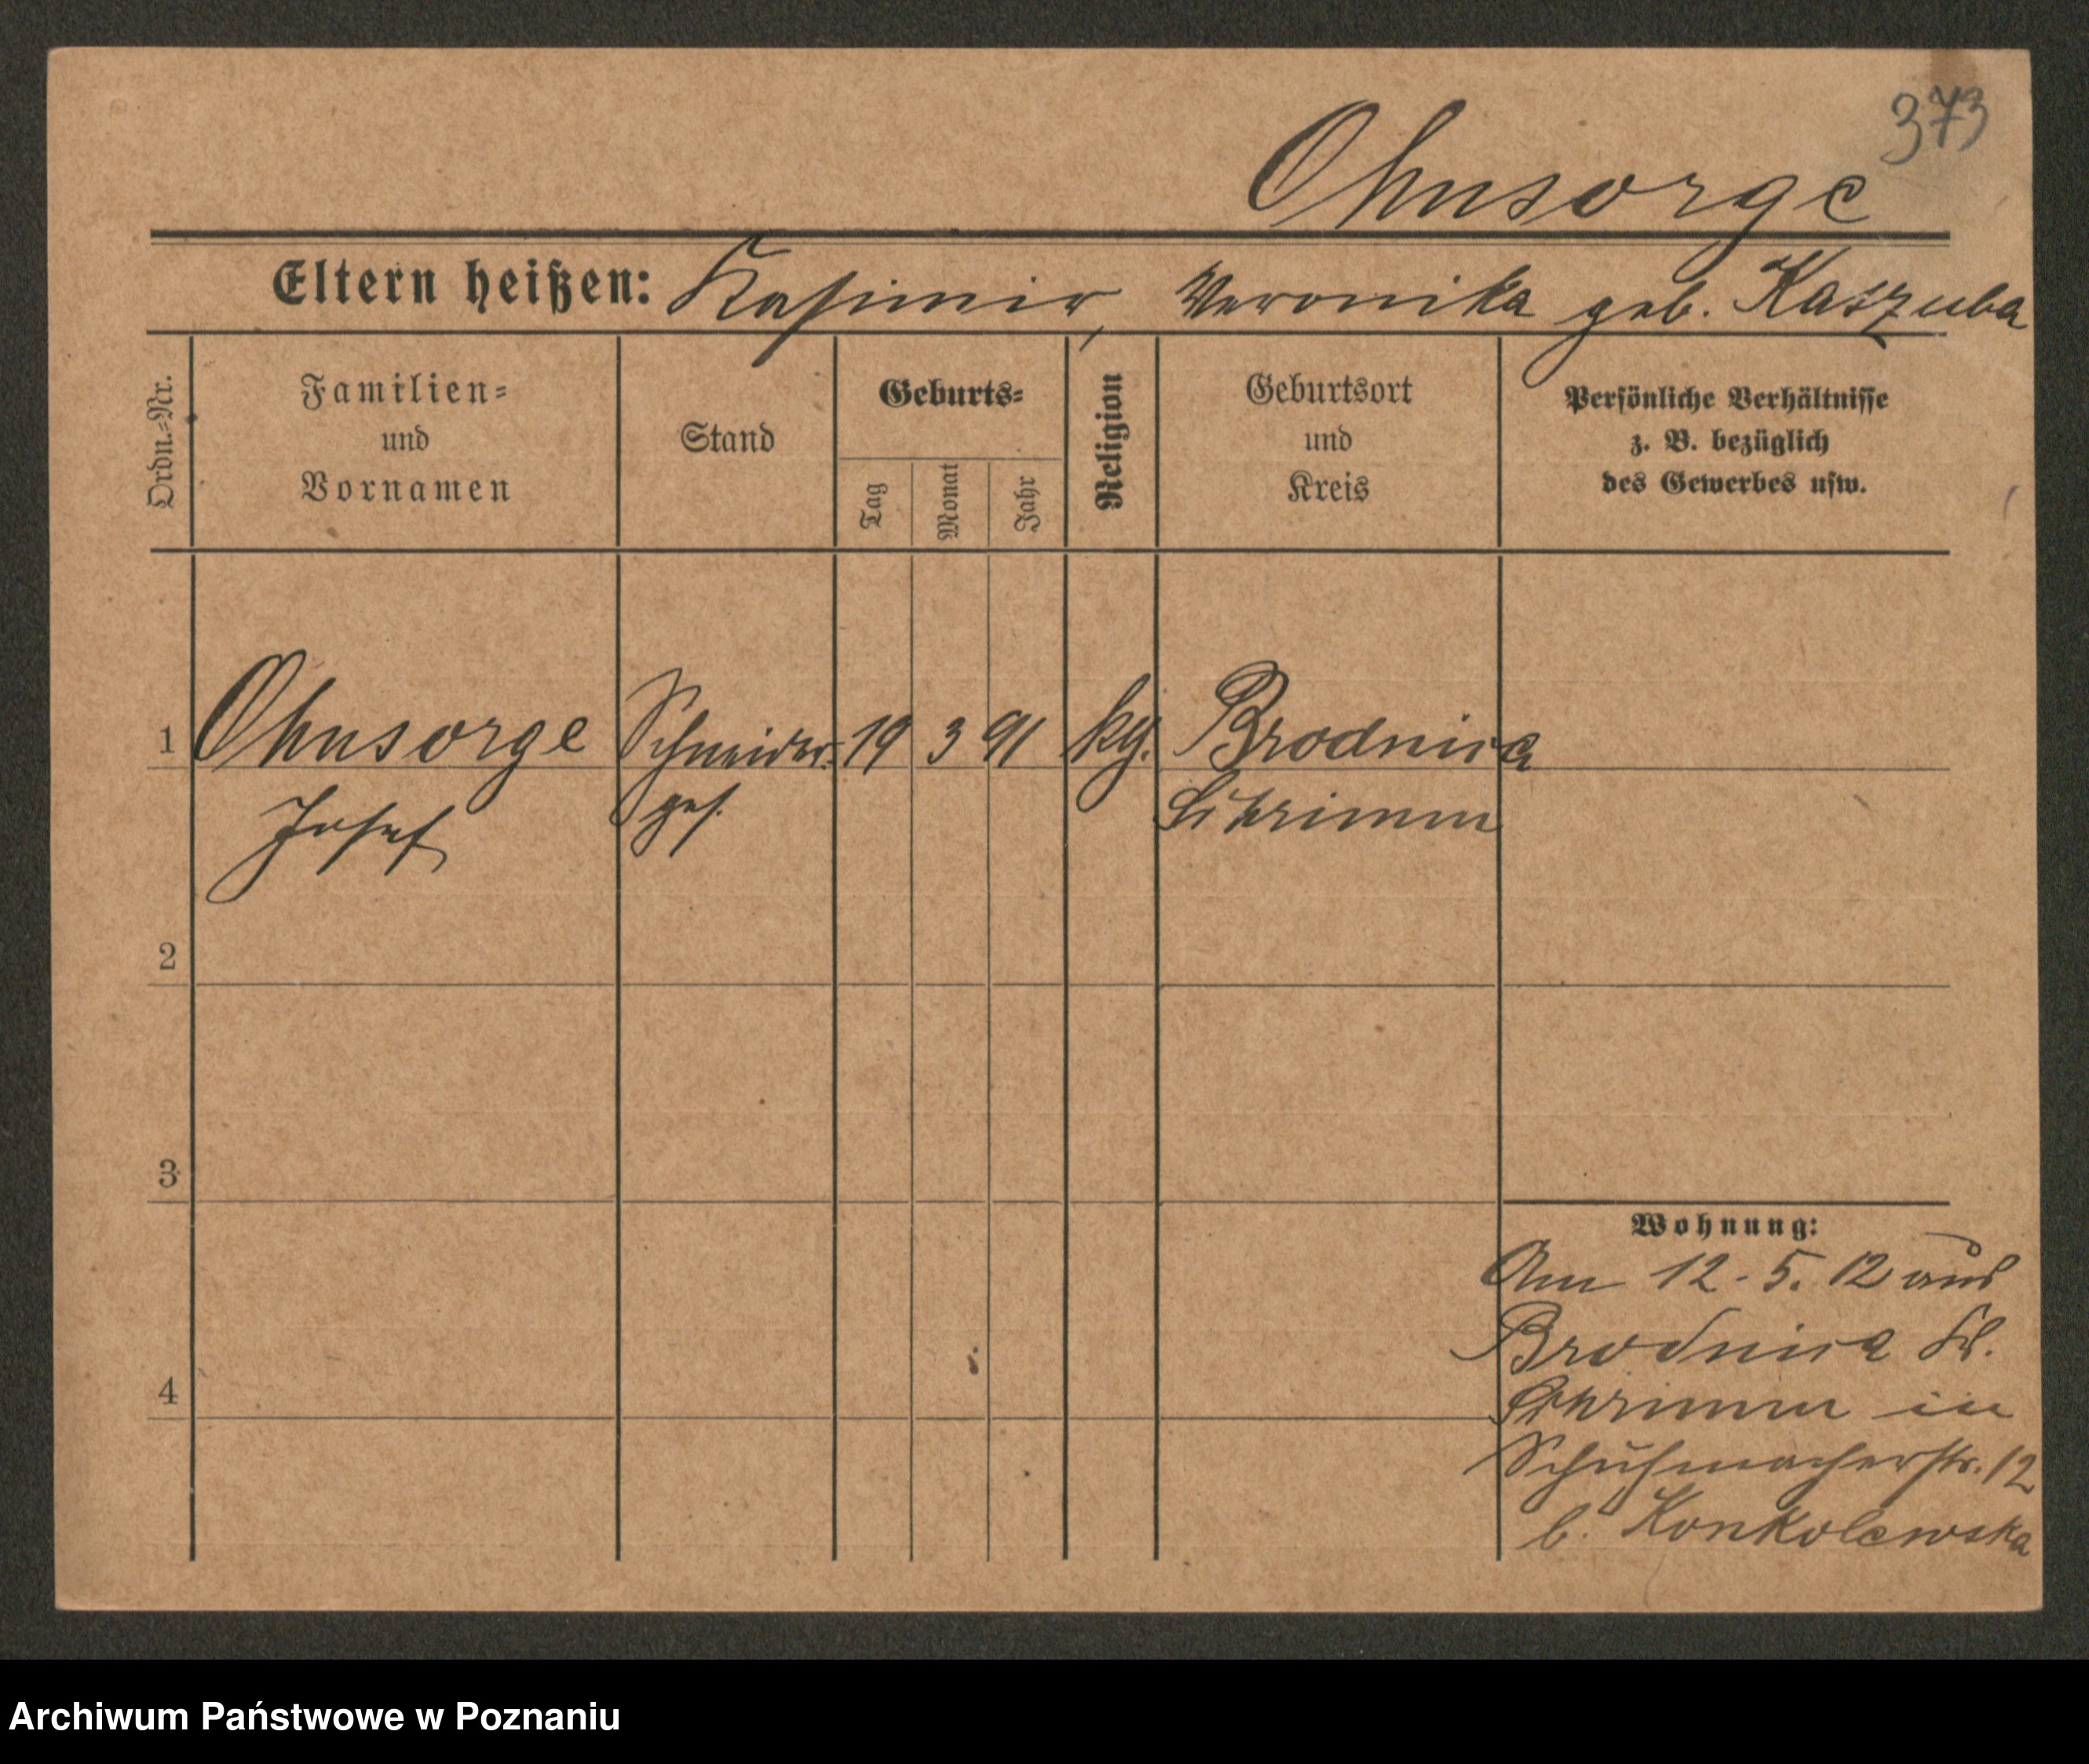 373
Ohnsorge
Eltern heißen: Kasimir, Veronika geb. Kaszuba
Ordn.-Nr.
Familien-
und
Vornamen
Stand
Geburts-
Tag
Monat
Jahr
Religion
Geburtsort
und
Kreis
Persönliche Verhältnisse
z. B. bezüglich
des Gewerbes usw.
1 Ohnsorge Schneider- 19 3 91 kg. Brodnica
Josef ges. Schrimm
2
3
Wohnung:
Am 12.5.12 aus
Brodnica Kr.
4
Schrimm in
Schuhmacherstr. 12
b. Konkolewska
Archiwum Państwowe w Poznaniu